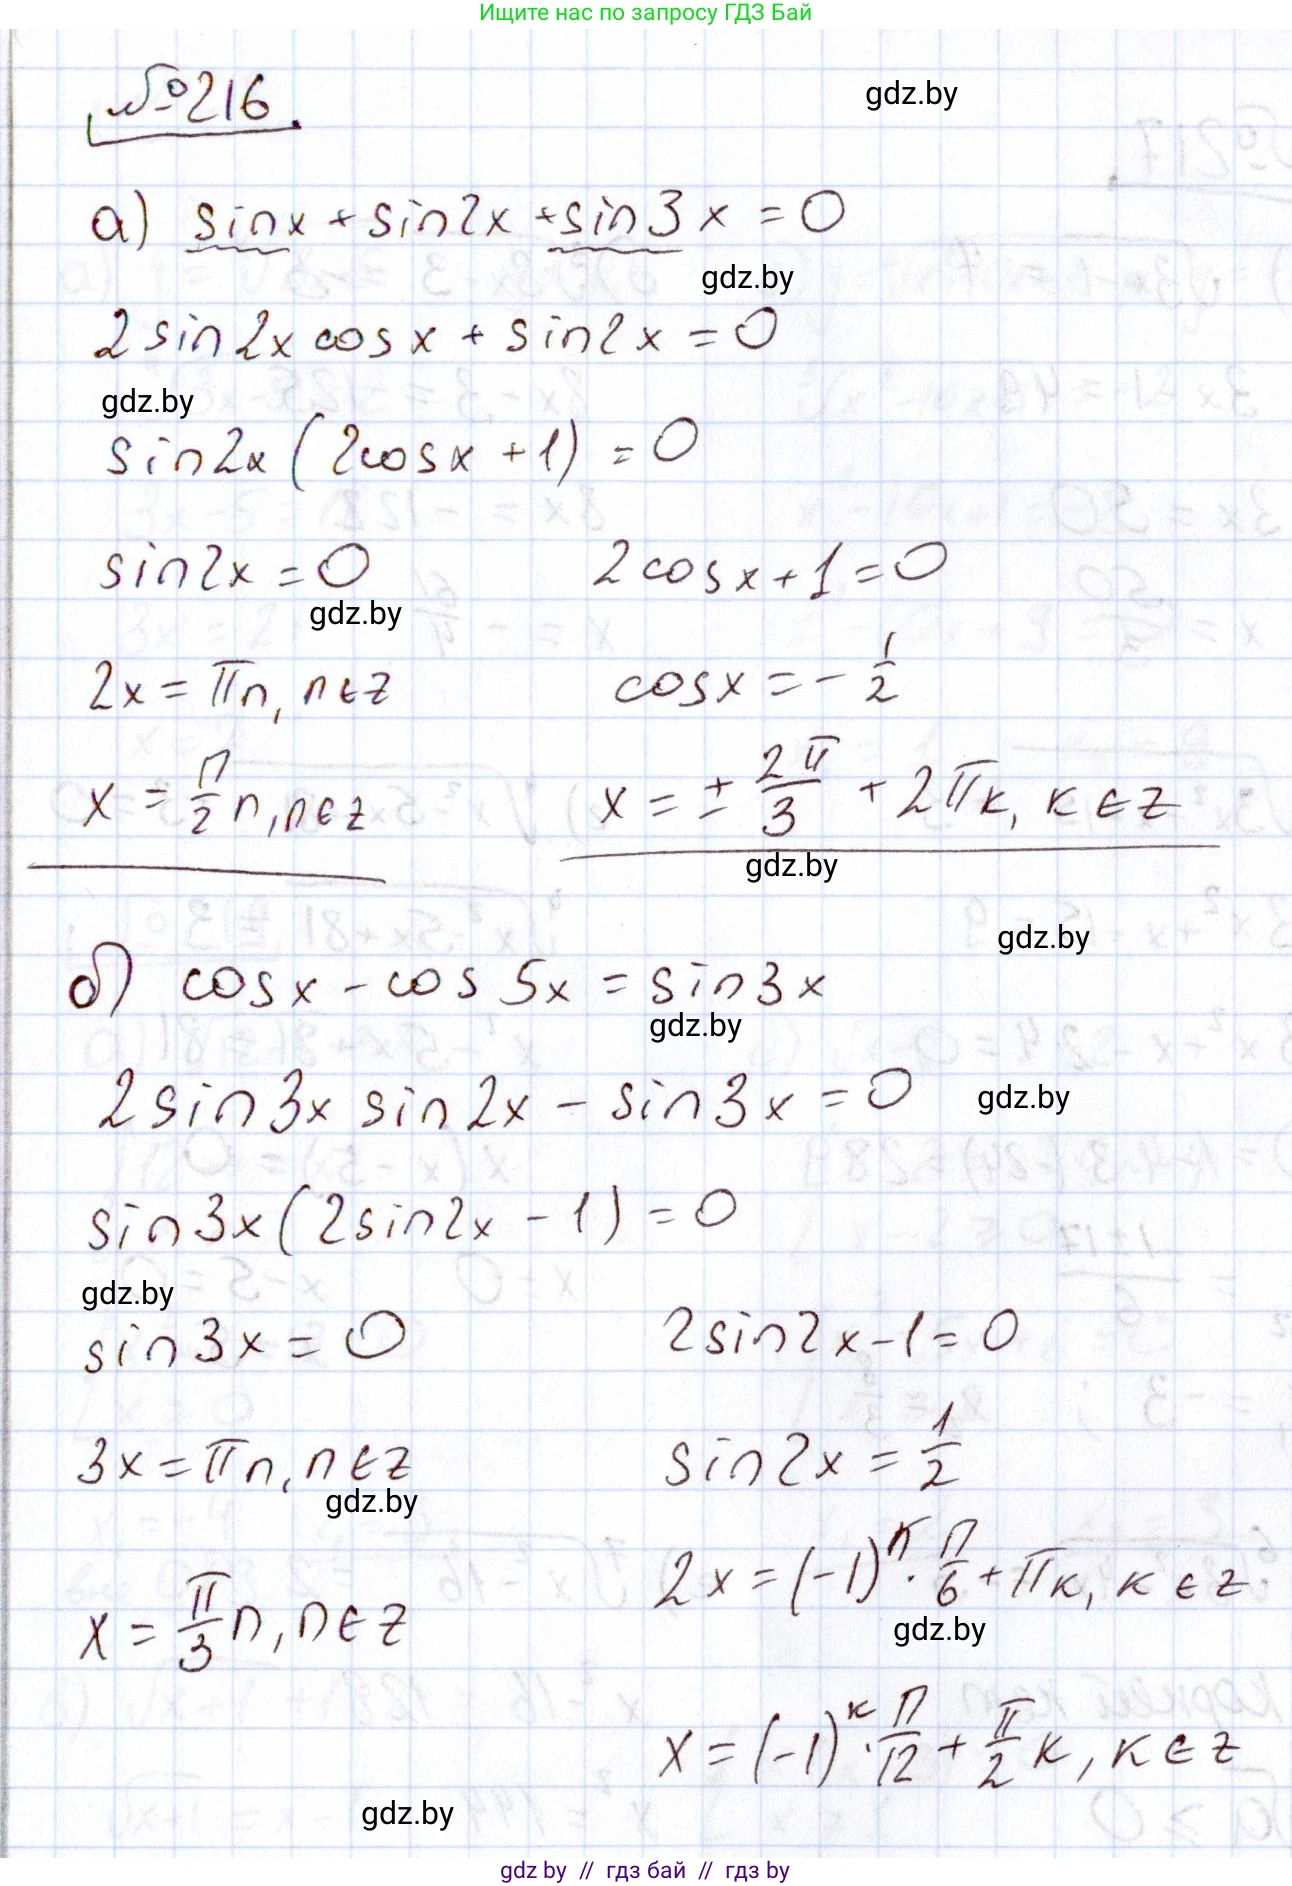 Ищите нас по запросу ГДЗ Бай
№216
gdz.by
а) sinx + sin2x + sin3x = 0
gdz.by
2sin2x cosx + sin2x = 0
gdz.by
sin2x (2cosx + 1) = 0
sin2x = 0 2cosx + 1 = 0
gdz.by
2x = πn, n∈z cosx = - 1/2
x = π/2 n, n∈z x = ± 2π/3 + 2πк, к∈z
gdz.by
gdz.by
б) cosx - cos5x = sin3x
gdz.by
2sin3x sin2x - sin3x = 0
gdz.by
sin3x (2sin2x - 1) = 0
gdz.by
sin3x = 0 2sin2x - 1 = 0
3x = πn, n∈z sin2x = 1/2
gdz.by
2x = (-1)^к · π/6 + πк, к∈z.
gdz.by
x = π/3 n, n∈z
x = (-1)^к · π/12 + π/2 к, к∈z
gdz.by
gdz by // гдз бай // гдз by